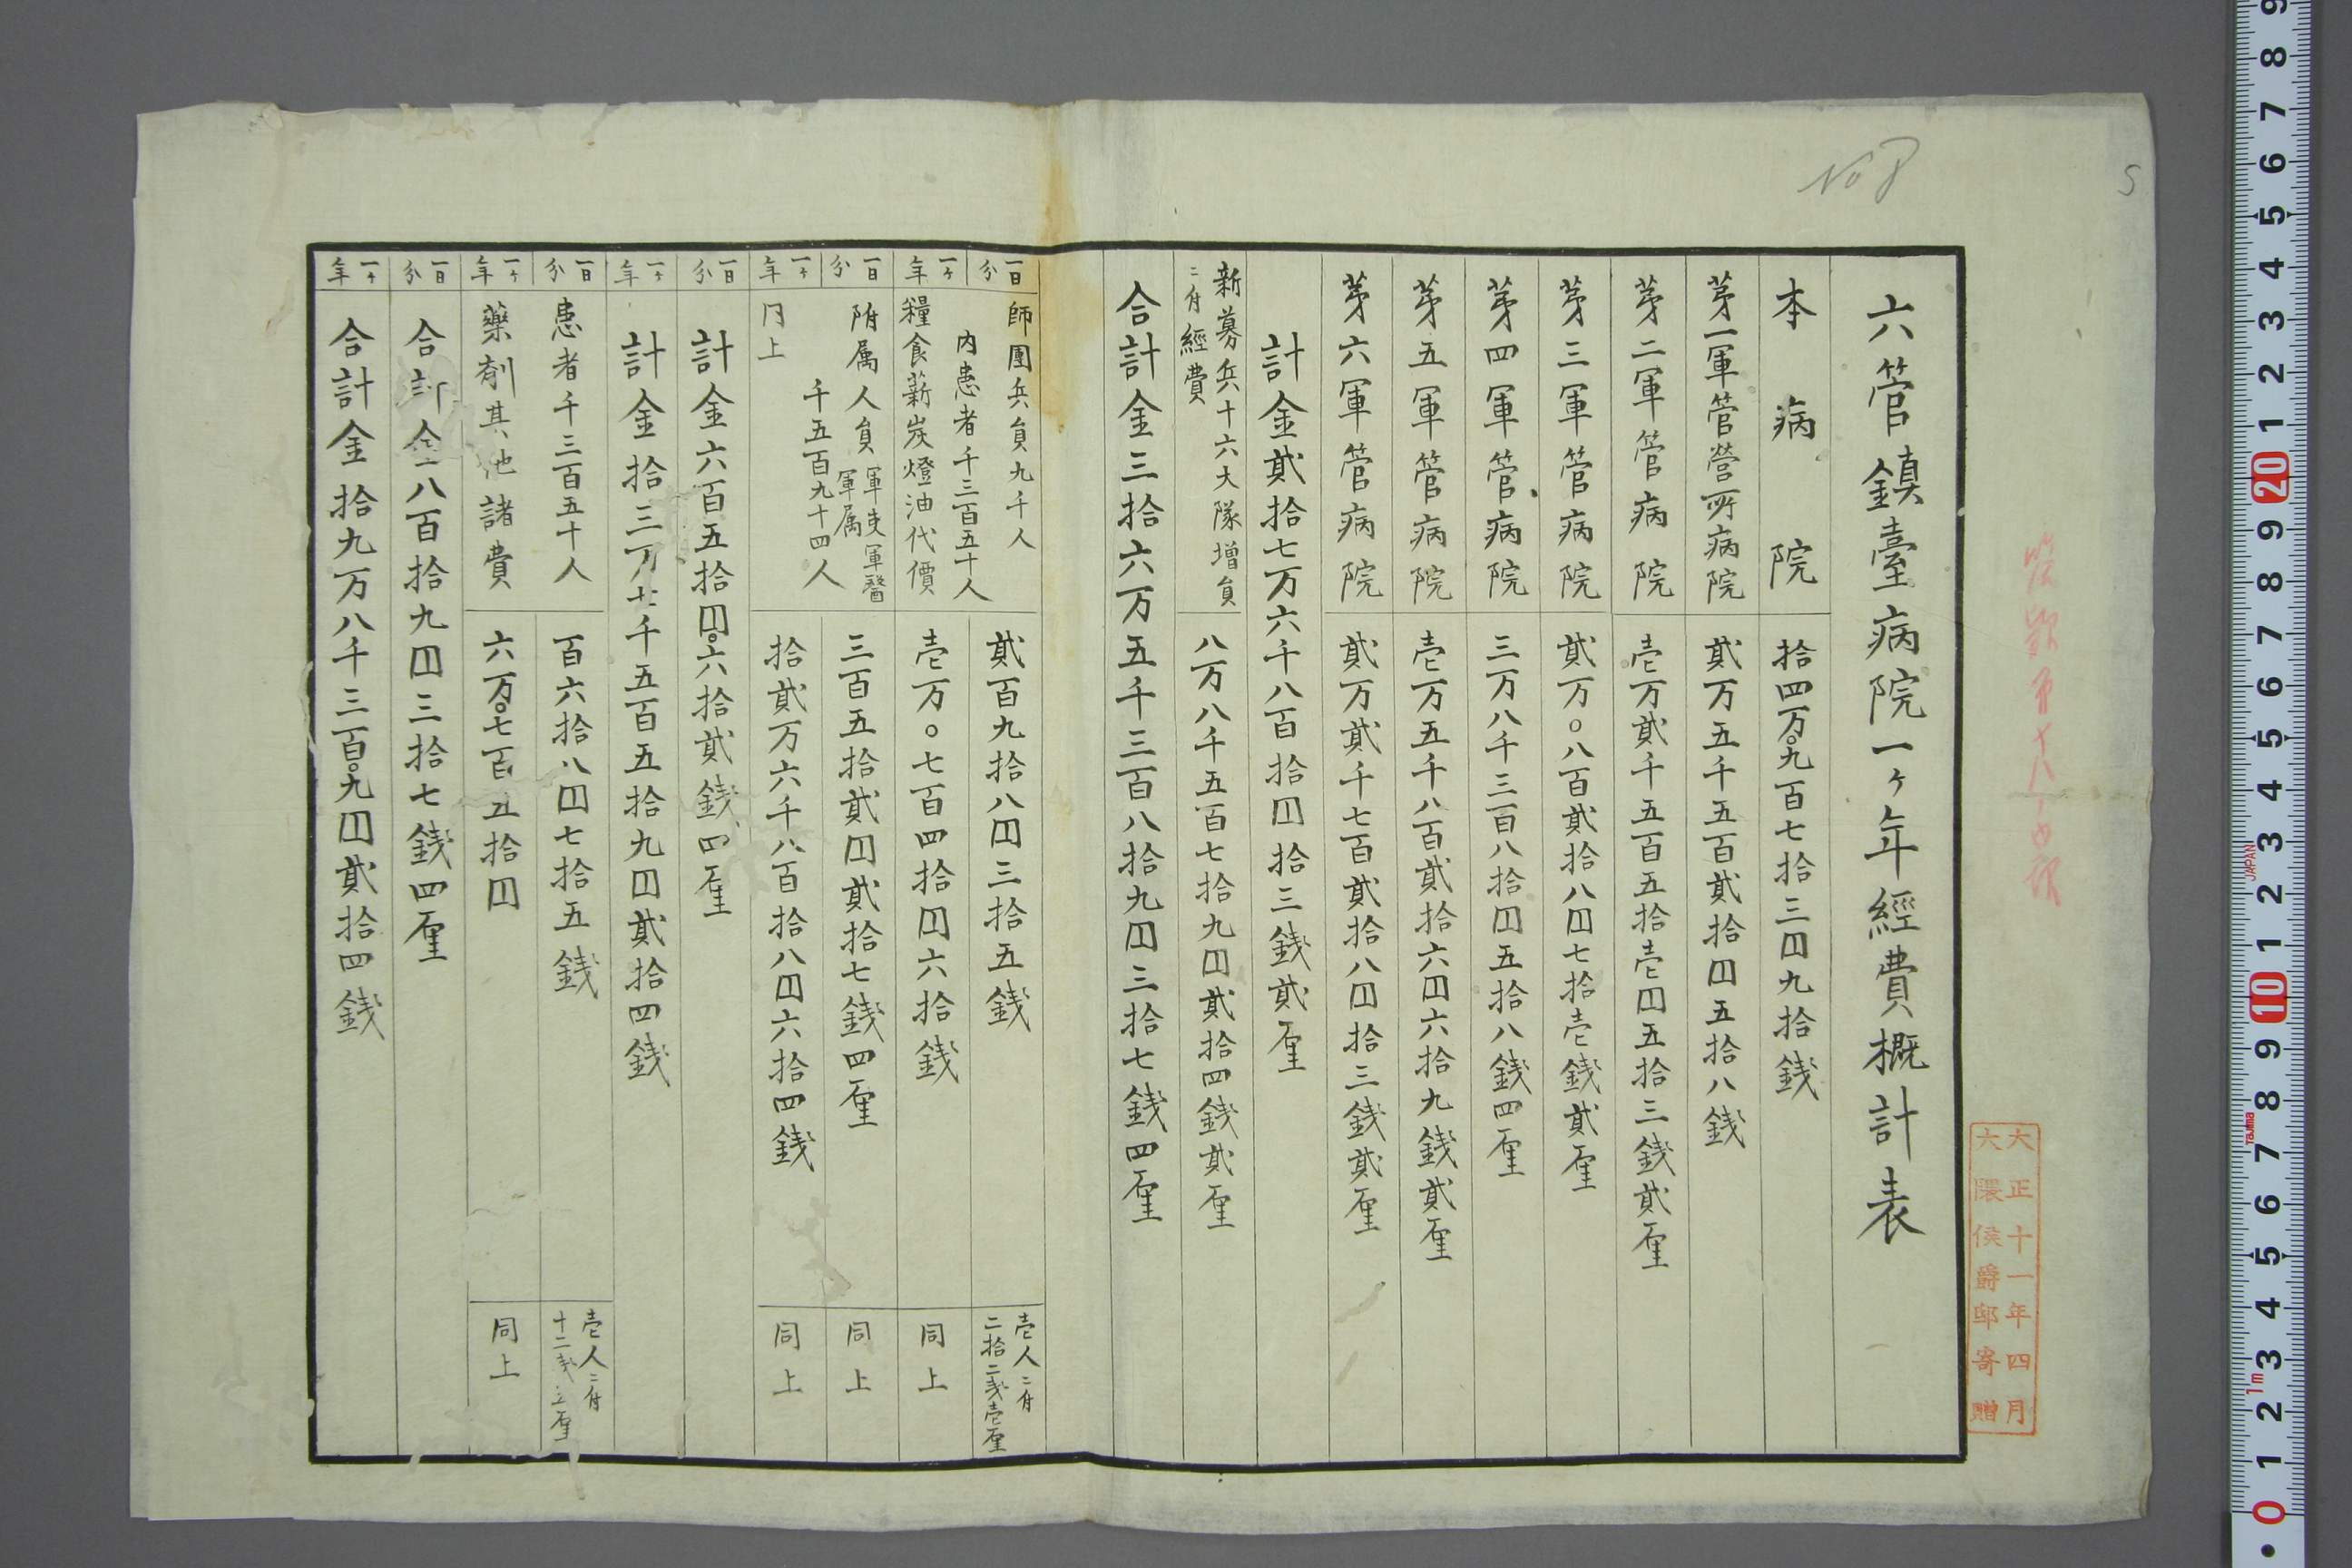 No 8
5
六管鎮臺病院一ヶ年經費概計表
本病院 拾四万〇九百七拾三円九拾銭
苐一軍管營所病院 貳万五千五百貳拾円五拾八銭
苐二軍管病院 壱万貳千五百五拾壱円五拾三銭貳厘
苐三軍管病院 貳万〇八百貳拾八円七拾壱銭貳厘
苐四軍管病院 三万八千三百八拾円五拾八銭四厘
苐五軍管病院 壱万五千八百貳拾六円六拾九銭貳厘
苐六軍管病院 貳万貳千七百貳拾八円拾三銭貳厘
計金貳拾七万六千八百拾円拾三銭貳厘
新募兵十六大隊増員
ニ付經費
八万八千五百七拾九円貳拾四銭貳厘
合計金三拾六万五千三百八拾九円三拾七銭四厘
一日分 師團兵員九千人
内患者千三百五十人
貳百九拾八円三拾五銭
壱人ニ付
二拾二銭壱厘
一ヶ年 糧食薪炭燈油代價 壱万〇七百四拾円六拾銭 同上
一日分 附属人員 軍吏軍醫
軍属
千五百九十四人
三百五拾貳円貳拾七銭四厘 同上
一ヶ年 冂上 拾貳万六千八百拾八円六拾四銭 同上
一日分 計金六百五拾円〇六拾貳銭四厘
一ヶ年 計金拾三万七千五百五拾九円貳拾四銭
一日分 患者千三百五十人 百六拾八円七拾五銭
壱人ニ付
十二銭五厘
一ヶ年 藥剤其他諸費 六万〇七百五拾円 同上
一日分 合計金八百拾九円三拾七銭四厘
一ヶ年 合計金拾九万八千三百〇九円貳拾四銭
大正十一年四月
大隈侯爵邸寄贈